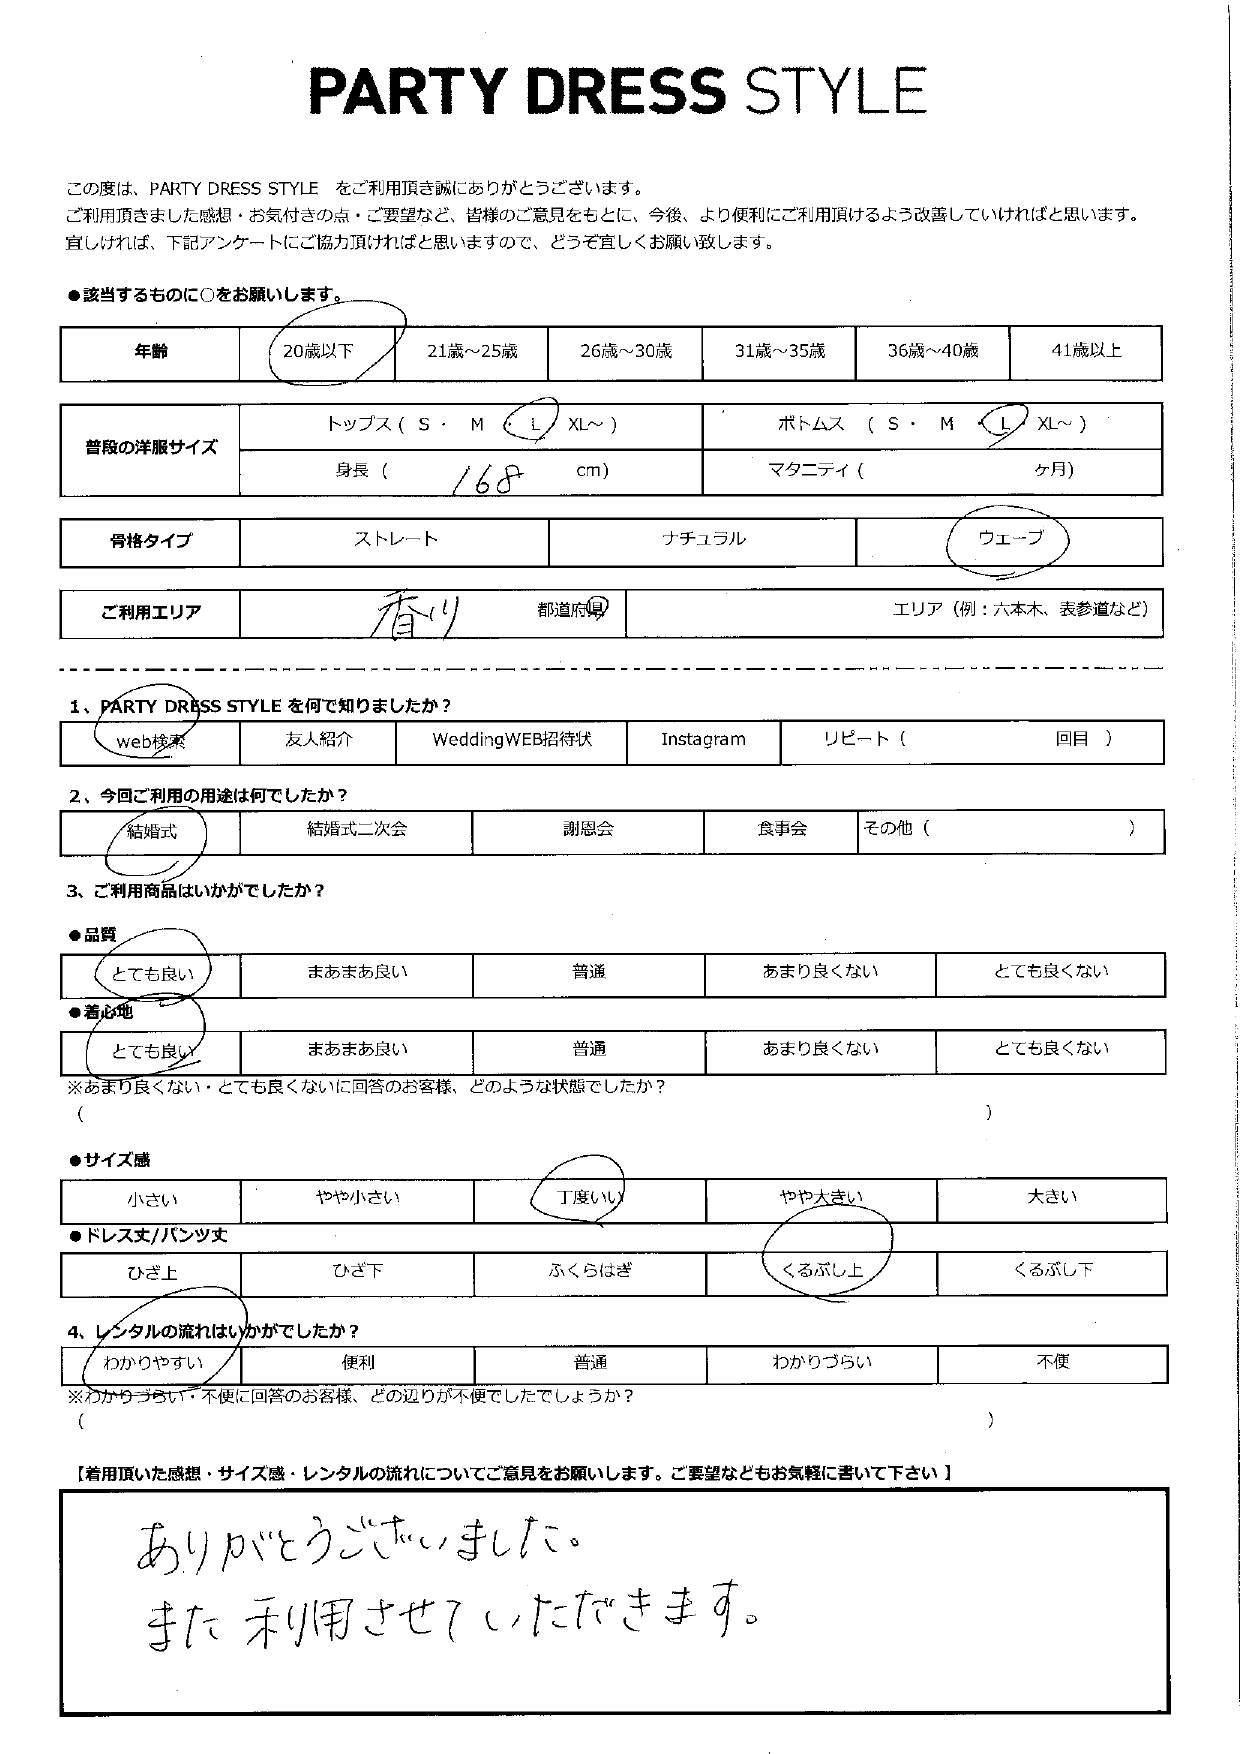 PARTY DRESS STYLE
この度は、PARTY DRESS STYLE をご利用頂き誠にありがとうございます。
ご利用頂きました感想・お気付きの点・ご要望など、皆様のご意見をもとに、今後、より便利にご利用頂けるよう改善していければと思います。
宜しければ、下記アンケートにご協力頂ければと思いますので、どうぞ宜しくお願い致します。
●該当するものに○をお願いします。
年齢 20歳以下 21歳～25歳 26歳～30歳 31歳～35歳 36歳～40歳 41歳以上
普段の洋服サイズ トップス ( S ・ M ・ L XL～ ) ボトムス ( S ・ M ・ L XL～ )
身長 ( 168 cm) マタニティ ( ヶ月)
骨格タイプ ストレート ナチュラル ウェーブ
ご利用エリア 香川 都道府県 エリア（例：六本木、表参道など）
1、PARTY DRESS STYLE を何で知りましたか？
web検索 友人紹介 WeddingWEB招待状 Instagram リピート ( 回目 )
2、今回ご利用の用途は何でしたか？
結婚式 結婚式二次会 謝恩会 食事会 その他 ( )
3、ご利用商品はいかがでしたか？
●品質
とても良い まあまあ良い 普通 あまり良くない とても良くない
●着心地
とても良い まあまあ良い 普通 あまり良くない とても良くない
※あまり良くない・とても良くないに回答のお客様、どのような状態でしたか？
( )
●サイズ感
小さい やや小さい 丁度いい やや大きい 大きい
●ドレス丈/パンツ丈
ひざ上 ひざ下 ふくらはぎ くるぶし上 くるぶし下
4、レンタルの流れはいかがでしたか？
わかりやすい 便利 普通 わかりづらい 不便
※わかりづらい・不便に回答のお客様、どの辺りが不便でしたでしょうか？
( )
【着用頂いた感想・サイズ感・レンタルの流れについてご意見をお願いします。ご要望などもお気軽に書いて下さい】
ありがとうございました。
また利用させていただきます。